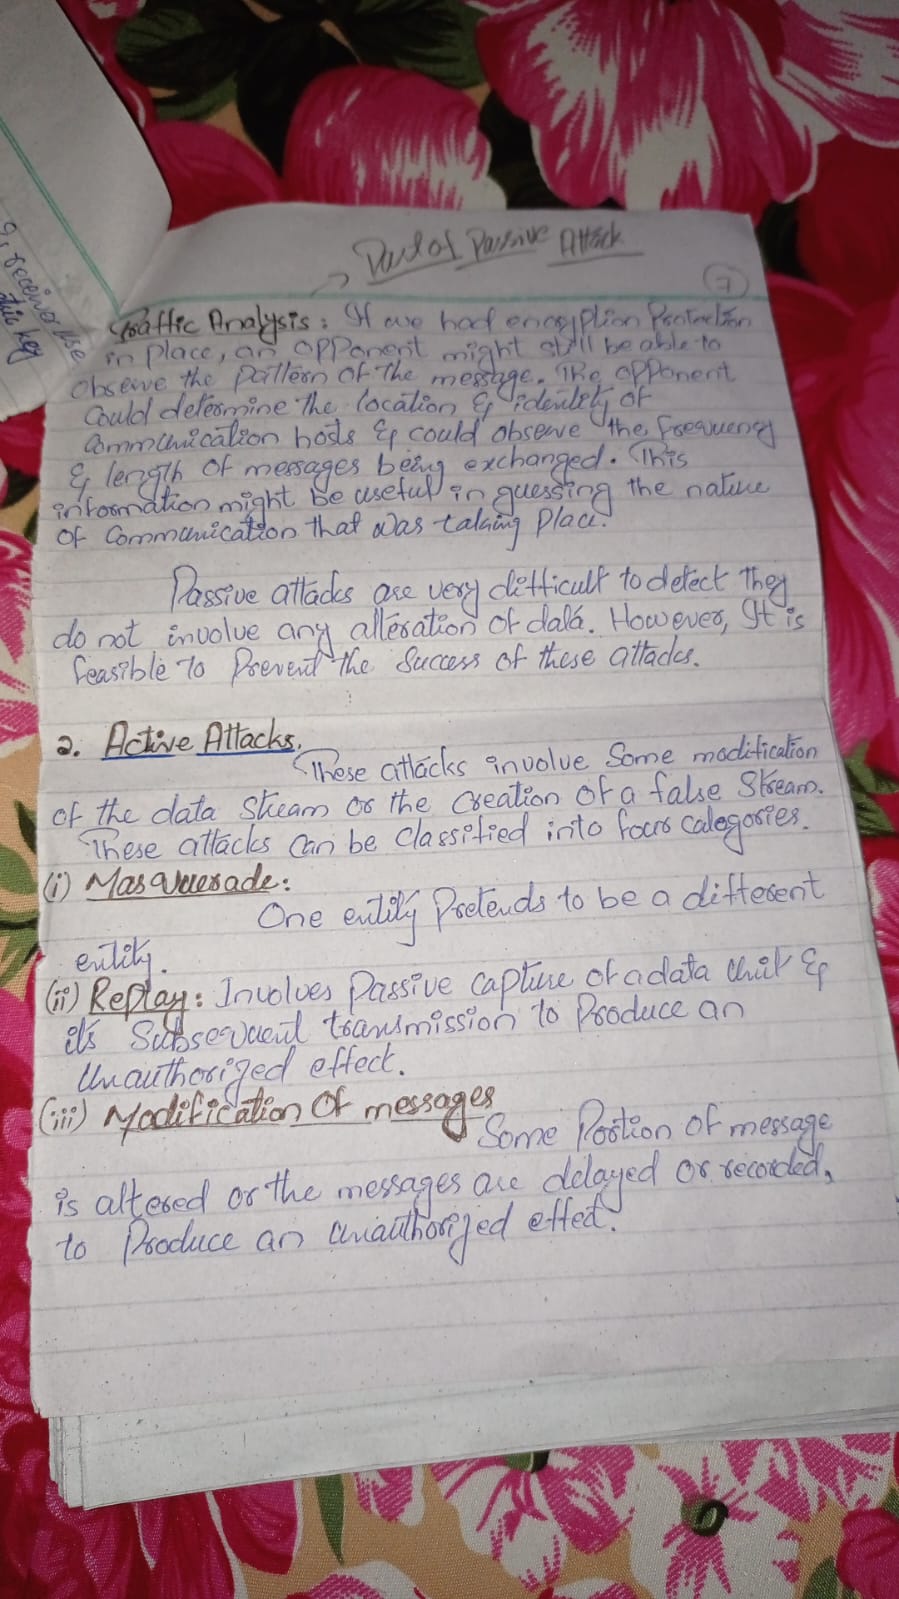 9, receiver use
this key
→ Part of Passive Attack
7
Traffic Analysis: If we had encryption Protection
in place, an opponent might still be able to
observe the pattern of the message. The opponent
could determine the location & identity of
communication hosts & could observe the frequency
& length of messages being exchanged. This
information might be useful in guessing the nature
of communication that was taking place.
Passive attacks are very difficult to detect they
do not involve any alteration of data. However, It is
feasible to prevent the success of these attacks.
2. Active Attacks.
These attacks involve some modification
of the data stream or the creation of a false stream.
These attacks can be classified into four categories.
(i) Masquerade:
One entity pretends to be a different
entity.
(ii) Replay: Involves passive capture of a data unit &
its subsequent transmission to produce an
unauthorized effect.
(iii) Modification of messages
Some portion of message
is altered or the messages are delayed or recorded,
to produce an unauthorized effect.